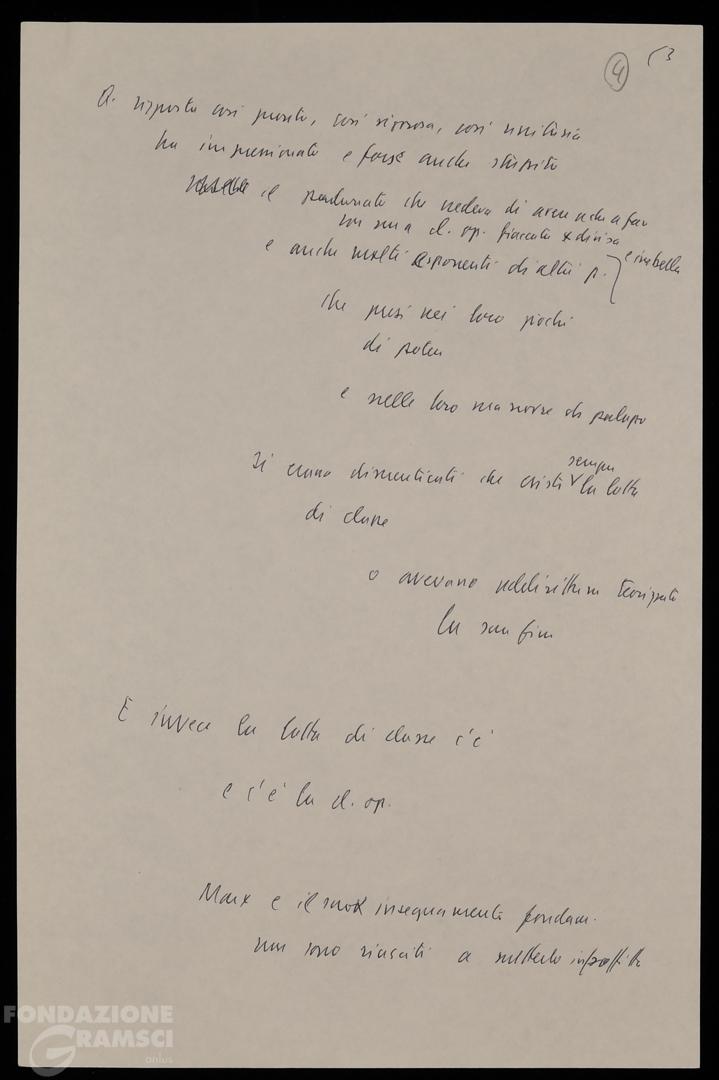 4
53
Q. risposta così pronta, così rigorosa, così unitaria
ha impressionato e forse anche stupito
il padronato che credeva di avere a che a far
con una cl. op. fiaccata e divisa
e imbelle
e anche molti esponenti di altri p.
che presi nei loro giochi
di potere
e nelle loro manovre di palazzo
si erano dimenticati che esiste sempre la lotta
di classe
o avevano addirittura teorizzato
la sua fine
E invece la lotta di classe c'è
e c'è la cl. op.
Marx e il suo insegnamento fondam.
non sono riusciti a metterlo in soffitta
FONDAZIONE
GRAMSCI
onlus